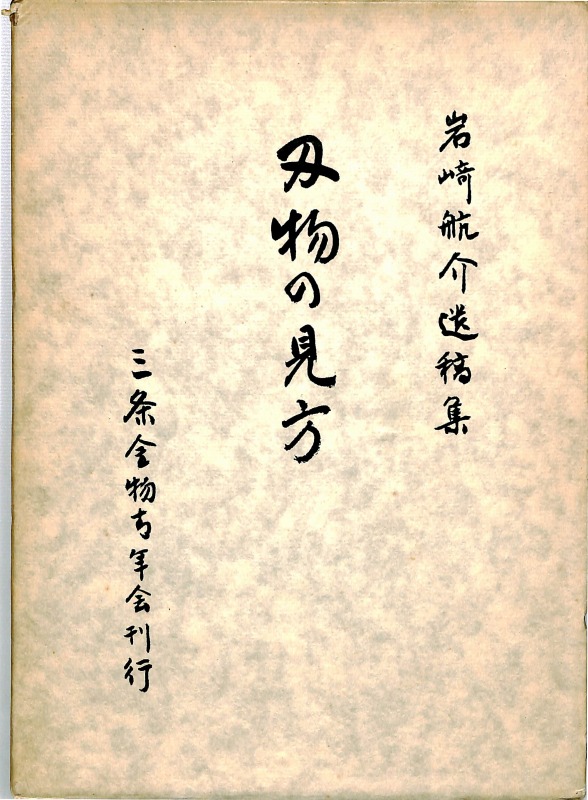 岩崎航介遺稿集
刃物の見方
三条金物青年会刊行